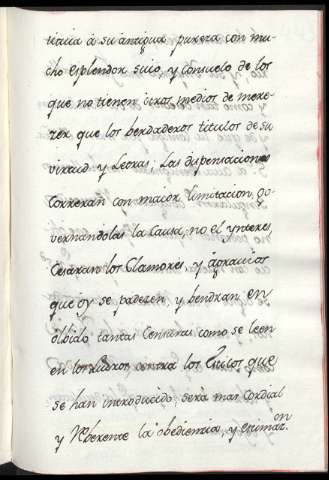 tituia à su antigua pureza con mu-
cho esplendor suio, y consuelo de los
que no tienen otros medios de mere-
zer que los berdaderos titulos de su
virtud y Letras. Las dispensaciones
Correran con maior limitacion, go-
vernandolas la Causa, no el ynteres,
Cesaran los Clamores, y agravios
que oy se padezen, y bendran en
olbido tantas Censuras como se leen
en los libros contra los que
se han introducido sera mas Cordial
y Reberente la obediencia, y estimaz.on